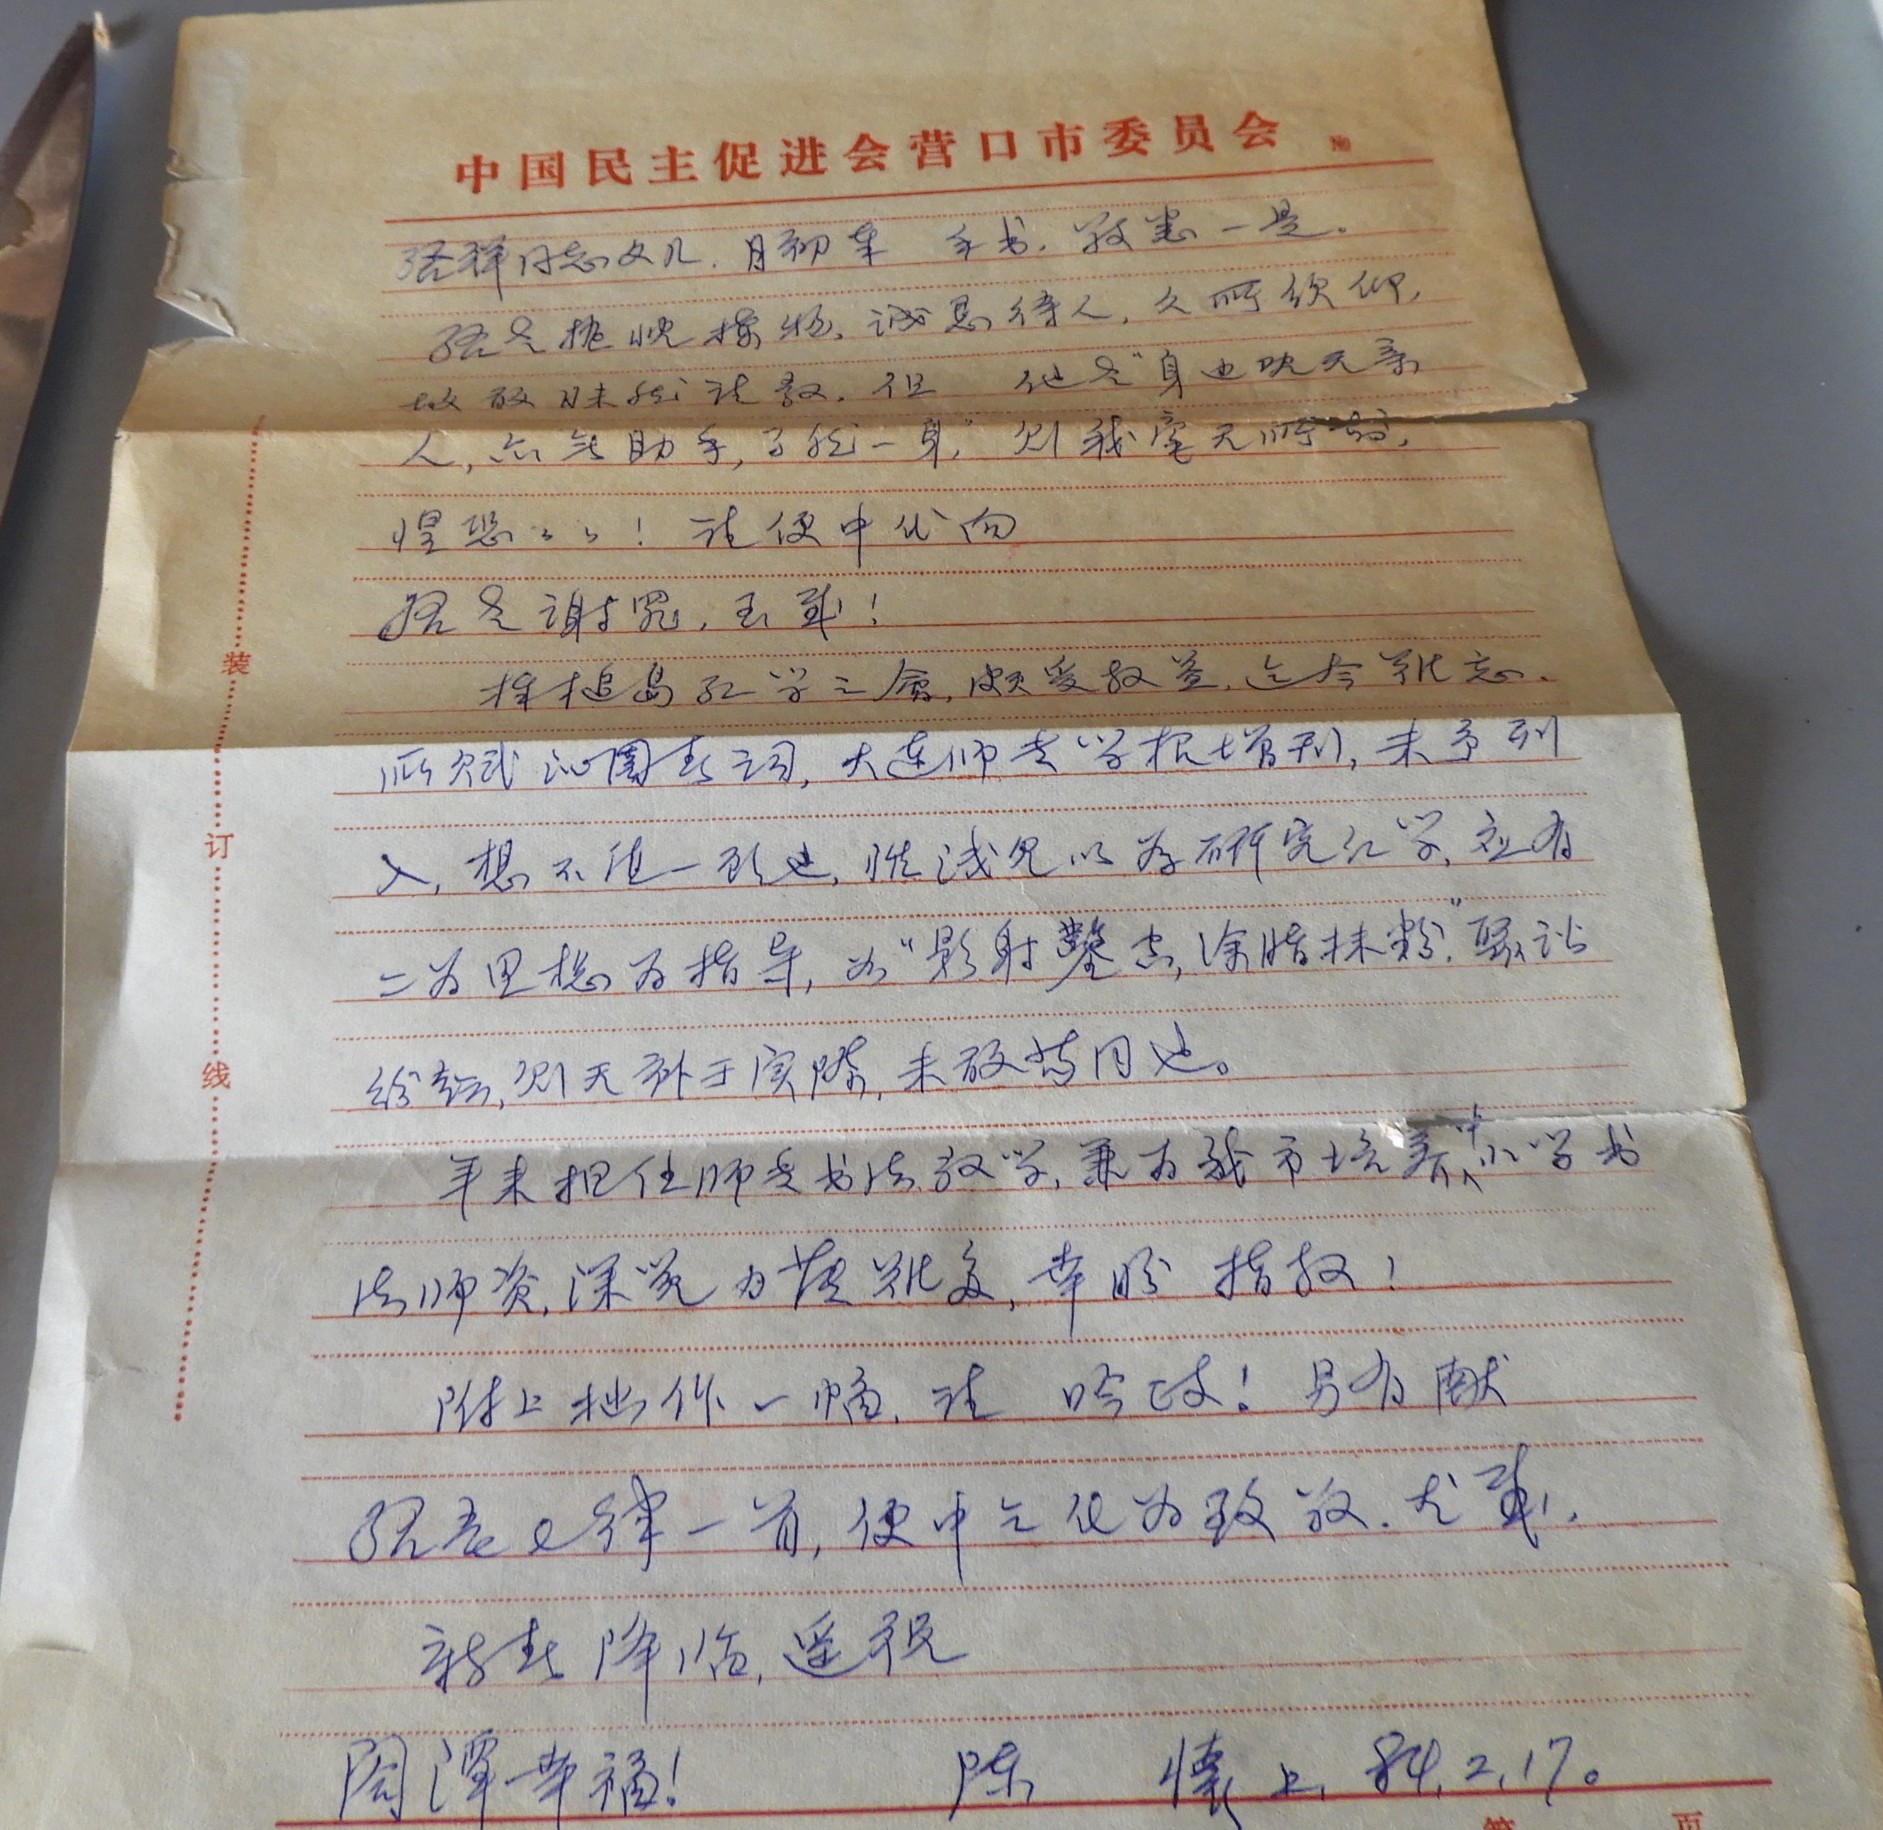 中国民主促进会营口市委员会 №
同志 月初 手书, 敬悉一是。
挹 诚恳待人, 久所钦仰,
故敢 请教, 但 他是"身边既无亲
人, 亦无助手, 了然一身," 则我毫无所知,
惶恐々々! 请便中代向
谢罪, 至感!
棒棰岛红学之会, 颇受教益, 迄今难忘。
所赋沁园春词, 大连师专学报增刊, 未予刊
入, 想不值一顾也, 惟浅见以为研究红学, 应有
二为思想为指导, 如"影射鑿空, 涂脂抹粉," 聚讼
纷纭, 则无补于实际, 未敢苟同也。
年来担任师专书法教学, 兼为我市培养中小学书
法师资, 深觉力薄 , 幸盼 指教!
附上拙作一幅, 请 吟正! 另有献
七律一首, 便中乞代为致敬, 尤感,
新春降临, 遥祝
阖潭幸福! 陈 懐上, 84.2.17。
装
订
线
第 页